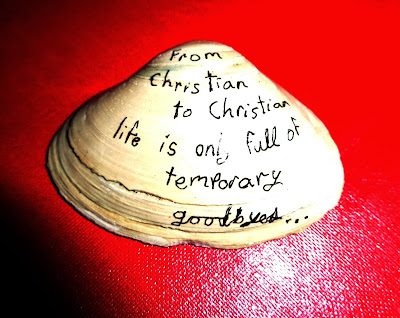 From
Christian
to Christian
life is only full of
temporary
goodbyes...